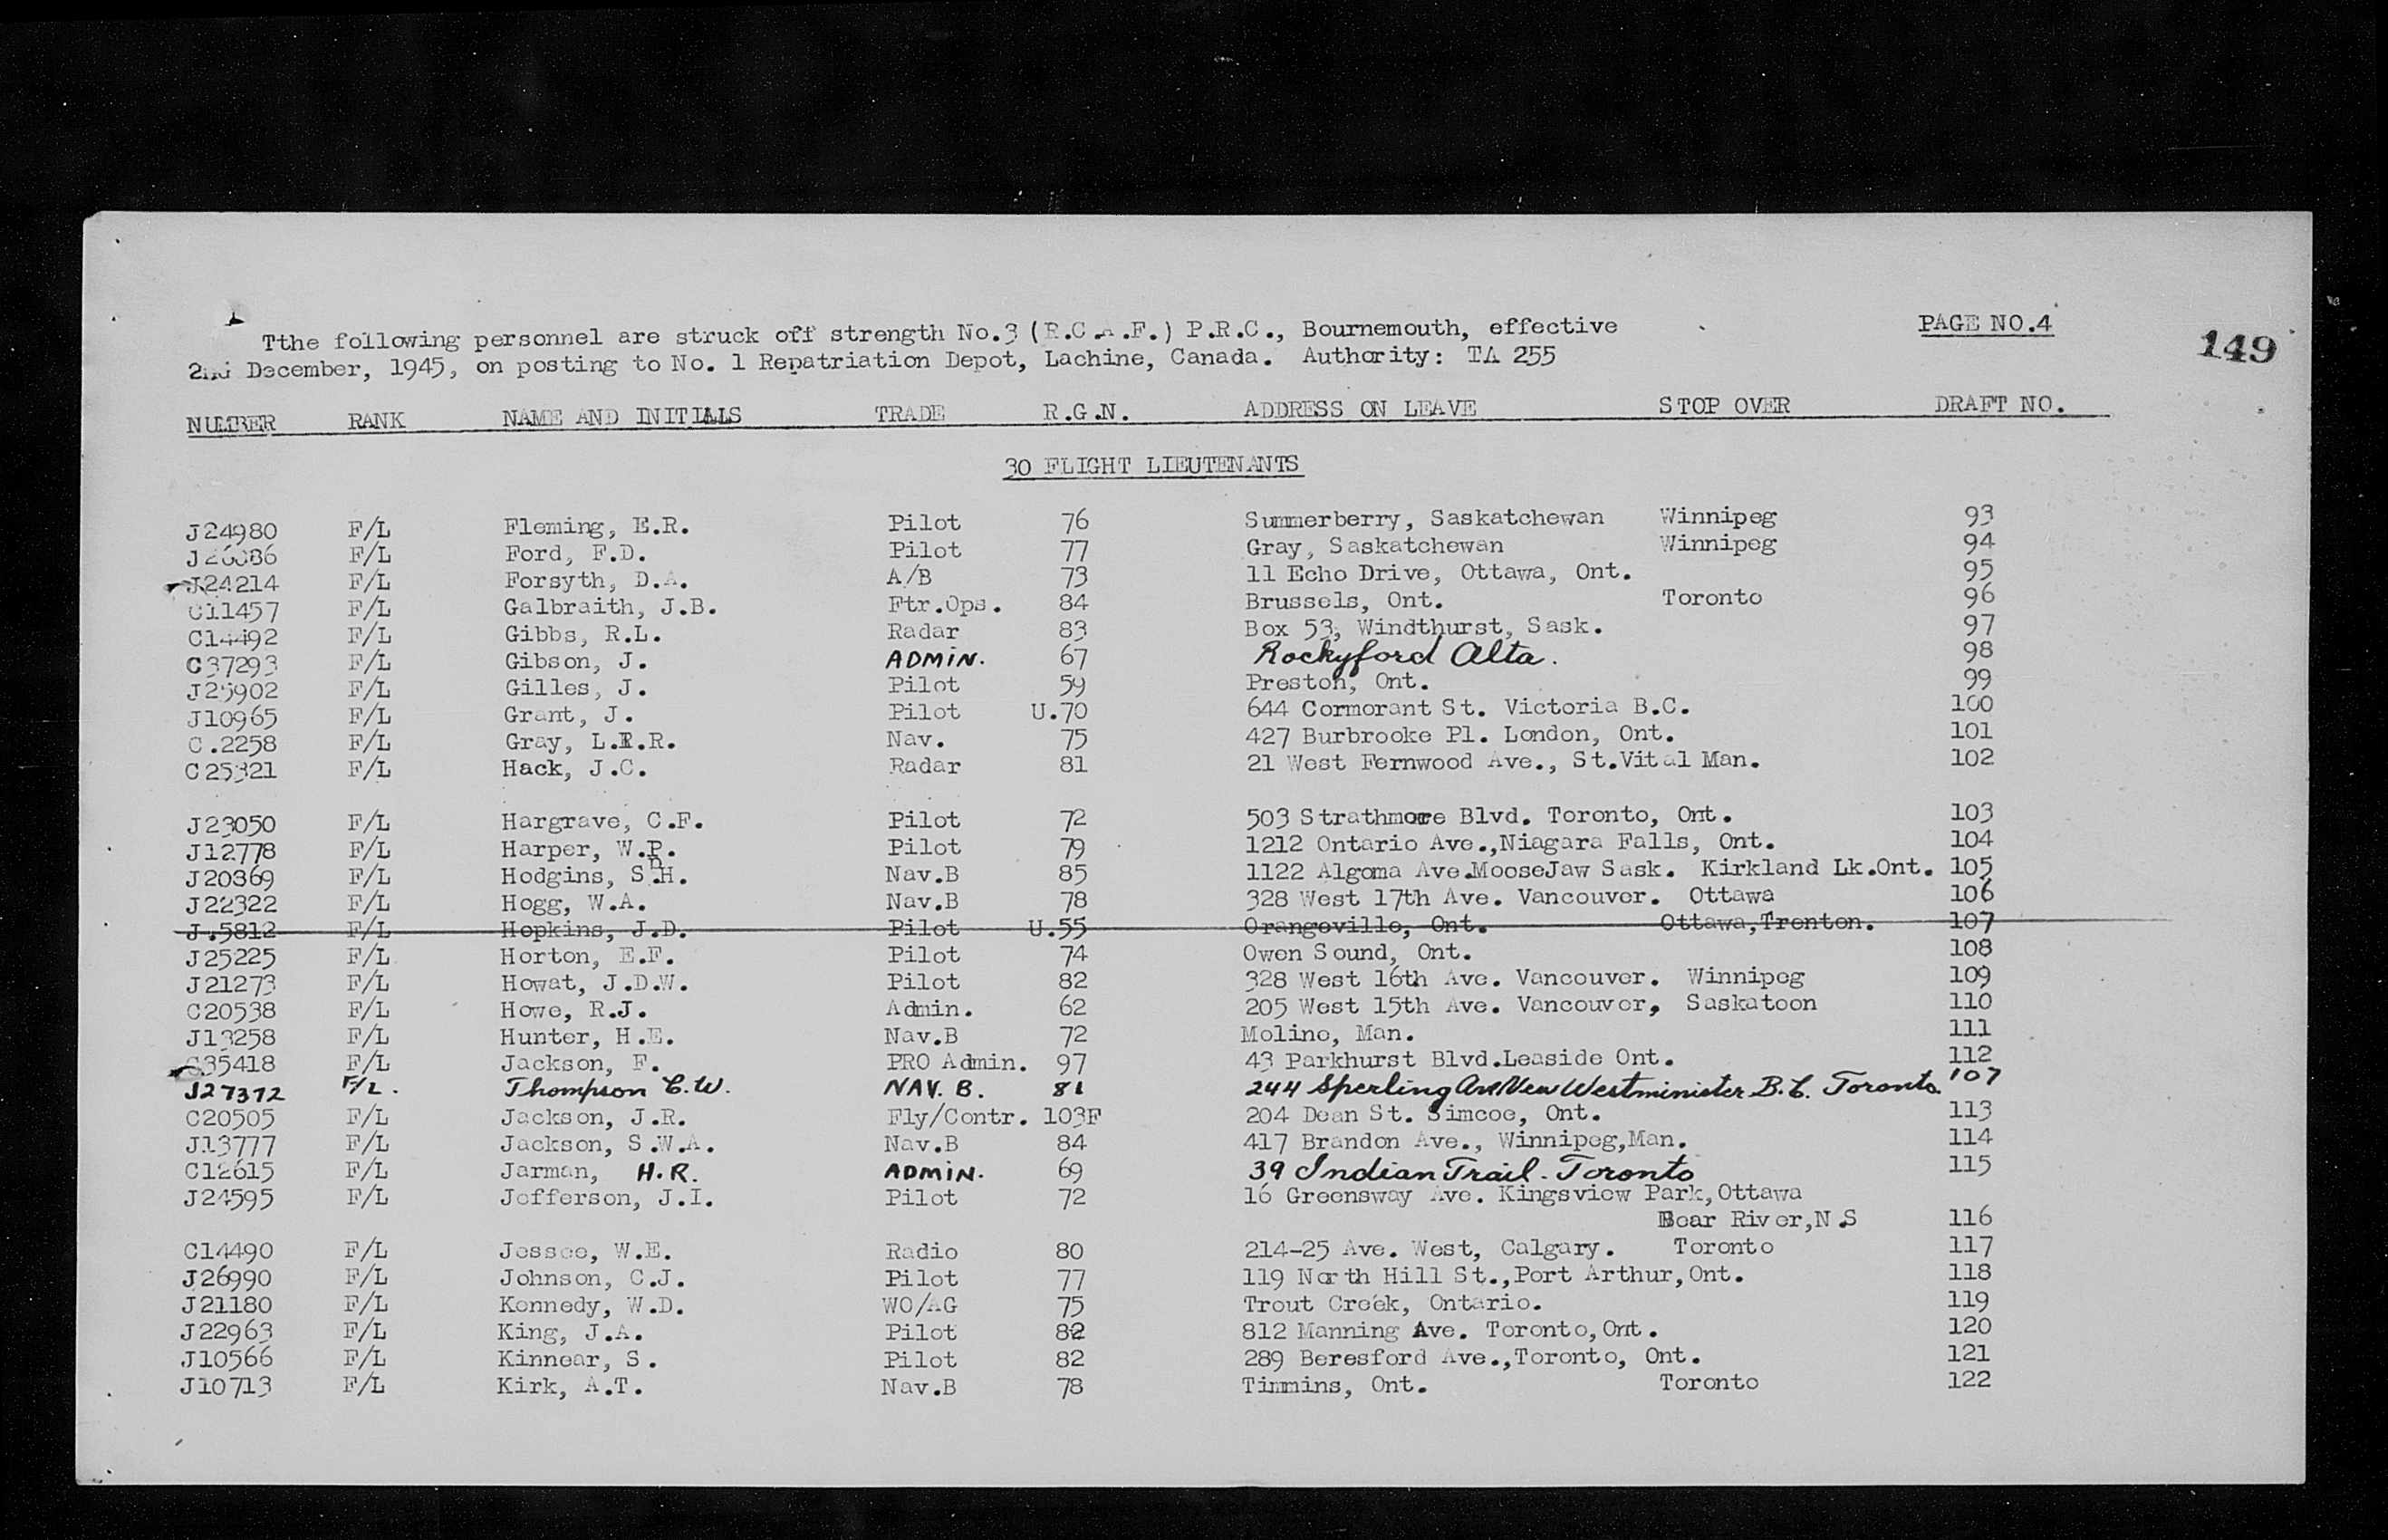 PAGE NO.4
149
Tthe following personnel are struck off strength No.3 (R.C.A.F.) P.R.C., Bournemouth, effective
2nd December, 1945, on posting to No. 1 Repatriation Depot, Lachine, Canada. Authority: TA 255
NUMBER RANK NAME AND INITIALS TRADE R.G.N. ADDRESS ON LEAVE STOP OVER DRAFT NO.
30 FLIGHT LIEUTENANTS
J24980 F/L Fleming, E.R. Pilot 76 Summerberry, Saskatchewan Winnipeg 93
F/L Ford, F.D. Pilot 77 Gray, Saskatchewan Winnipeg 94
J24214 F/L Forsyth, D.A. A/B 73 11 Echo Drive, Ottawa, Ont. 95
C11457 F/L Galbraith, J.B. Ftr.Ops. 84 Brussels, Ont. Toronto 96
C14492 F/L Gibbs, R.L. Radar 83 Box 53, Windthurst, Sask. 97
C37293 F/L Gibson, J. ADMIN. 67 Rockyford Alta. 98
J25902 F/L Gilles, J. Pilot 59 Preston, Ont. 99
J10965 F/L Grant, J. Pilot U.70 644 Cormorant St. Victoria B.C. 100
C.2258 F/L Gray, L.E.R. Nav. 75 427 Burbrooke Pl. London, Ont. 101
C25321 F/L Hack, J.C. Radar 81 21 West Fernwood Ave., St.Vital Man. 102
J23050 F/L Hargrave, C.F. Pilot 72 503 Strathmore Blvd. Toronto, Ont. 103
J12778 F/L Harper, W.P. Pilot 79 1212 Ontario Ave.,Niagara Falls, Ont. 104
J20369 F/L Hodgins, S.H. Nav.B 85 1122 Algoma Ave.MooseJaw Sask. Kirkland Lk.Ont. 105
J22322 F/L Hogg, W.A. Nav.B 78 328 West 17th Ave. Vancouver. Ottawa 106
J.5812 F/L Hopkins, J.D. Pilot U.55 Orangeville, Ont. Ottawa,Trenton. 107
J25225 F/L Horton, E.F. Pilot 74 Owen Sound, Ont. 108
J21273 F/L Howat, J.D.W. Pilot 82 328 West 16th Ave. Vancouver. Winnipeg 109
C20538 F/L Howe, R.J. Admin. 62 205 West 15th Ave. Vancouver, Saskatoon 110
J13258 F/L Hunter, H.E. Nav.B 72 Moline, Man. 111
C35418 F/L Jackson, F. PRO Admin. 97 43 Parkhurst Blvd.Leaside Ont. 112
J27372 F/L. Thompson C.W. NAV. B. 81 244 Sperling Ave New Westminister B.C. Toronto 107
C20505 F/L Jackson, J.R. Fly/Contr. 103F 204 Dean St. Simcoe, Ont. 113
J13777 F/L Jackson, S.W.A. Nav.B 84 417 Brandon Ave., Winnipeg,Man. 114
C12615 F/L Jarman, H.R. ADMIN. 69 39 Indian Trail. Toronto 115
J24595 F/L Jefferson, J.I. Pilot 72 16 Greensway Ave. Kingsview Park,Ottawa
Bear River,N.S 116
C14490 F/L Jessee, W.E. Radio 80 214-25 Ave. West, Calgary. Toronto 117
J26990 F/L Johnson, C.J. Pilot 77 119 North Hill St.,Port Arthur,Ont. 118
J21180 F/L Kennedy, W.D. WO/AG 75 Trout Creek, Ontario. 119
J22963 F/L King, J.A. Pilot 82 812 Manning Ave. Toronto,Ont. 120
J10566 F/L Kinnear, S. Pilot 82 289 Beresford Ave.,Toronto, Ont. 121
J10713 F/L Kirk, A.T. Nav.B 78 Timmins, Ont. Toronto 122